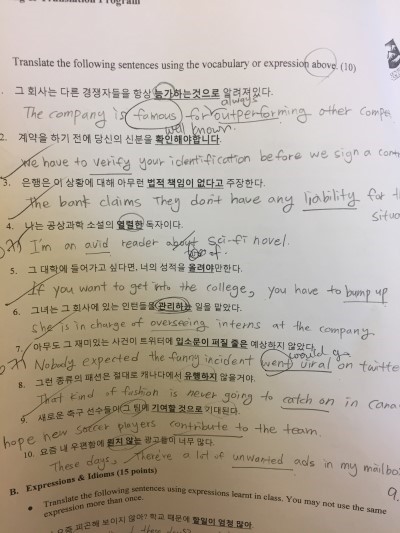 Translation Program
Translate the following sentences using the vocabulary or expression above. (10)
그 회사는 다른 경쟁자들을 항상 능가하는것으로 알려져있다.
always
The company is famous for outperforming other
well known
2. 계약을 하기 전에 당신의 신분을 확인해야합니다.
We have to verify your identification before we sign a
3. 은행은 이 상황에 대해 아무런 법적 책임이 없다고 주장한다.
The bank claims They don't have any liability for
4. 나는 공상과학 소설의 열렬한 독자이다.
I'm an avid reader about Sci-fi novel.
of
5. 그 대학에 들어가고 싶다면, 너의 성적을 올려야만한다.
If you want to get into the college, you have to bump up
6. 그녀는 그 회사에 있는 인턴들을 관리하는 일을 맡았다.
She is in charge of overseeing interns at the company.
7. 아무도 그 재미있는 사건이 트위터에 입소문이 퍼질 줄은 예상하지 않았다.
would go
Nobody expected the funny incident went viral on
8. 그런 종류의 패션은 절대로 캐나다에서 유행하지 않을거야.
That kind of fashion is never going to catch on in
9. 새로운 축구 선수들이 그 팀에 기여할 것으로 기대된다.
hope new soccer players contribute to the team.
10. 요즘 내 우편함에 원치 않는 광고들이 너무 많다.
These days, There're a lot of unwanted ads in my
9.
B. Expressions & Idioms (15 points)
• Translate the following sentences using expressions learnt in class. You may not use the same
expression more than once.
피곤해 보이지 않아? 학교 때문에 할일이 엄청 많아.